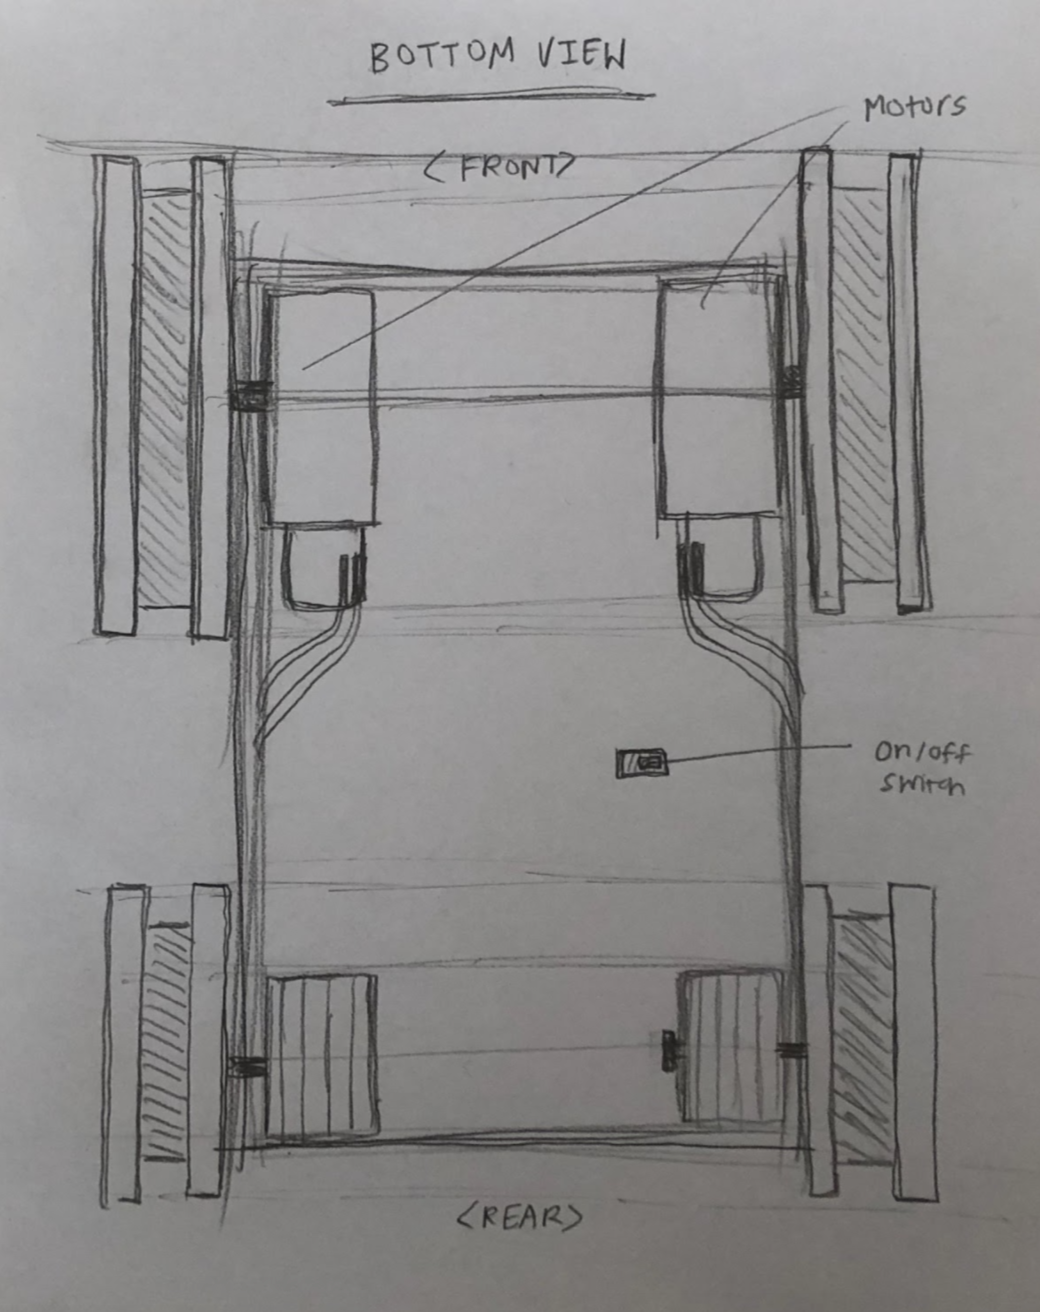 BOTTOM VIEW
Motors
<FRONT>
On/off
switch
<REAR>